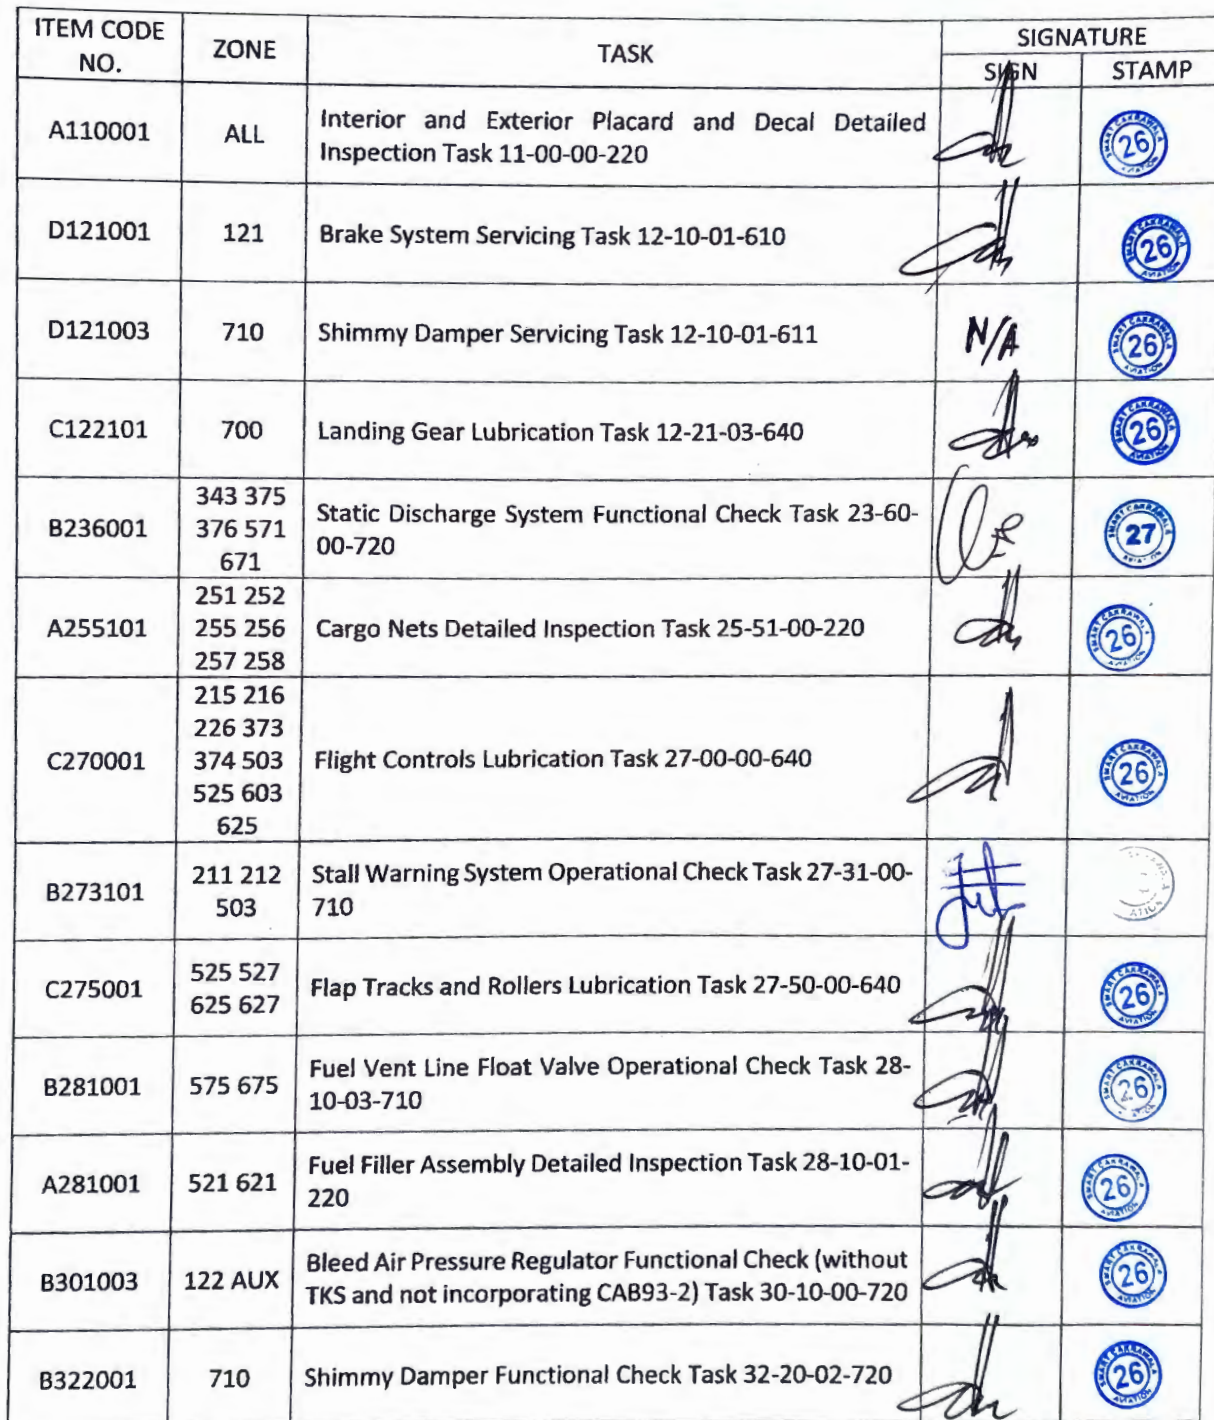 ITEM CODE
NO.
ZONE
TASK
SIGNATURE
SIGN
STAMP
A110001
ALL
Interior and Exterior Placard and Decal Detailed
Inspection Task 11-00-00-220
SMART CAKRAWALA
26
AVIATION
D121001
121
Brake System Servicing Task 12-10-01-610
SMART CAKRAWALA
26
AVIATION
D121003
710
Shimmy Damper Servicing Task 12-10-01-611
N/A
SMART CAKRAWALA
26
AVIATION
C122101
700
Landing Gear Lubrication Task 12-21-03-640
SMART CAKRAWALA
26
AVIATION
B236001
343 375
376 571
671
Static Discharge System Functional Check Task 23-60-
00-720
SMART CAKRAWALA
27
AVIATION
A255101
251 252
255 256
257 258
Cargo Nets Detailed Inspection Task 25-51-00-220
SMART CAKRAWALA
26
AVIATION
C270001
215 216
226 373
374 503
525 603
625
Flight Controls Lubrication Task 27-00-00-640
SMART CAKRAWALA
26
AVIATION
B273101
211 212
503
Stall Warning System Operational Check Task 27-31-00-
710
C275001
525 527
625 627
Flap Tracks and Rollers Lubrication Task 27-50-00-640
SMART CAKRAWALA
26
AVIATION
B281001
575 675
Fuel Vent Line Float Valve Operational Check Task 28-
10-03-710
SMART CAKRAWALA
26
A281001
521 621
Fuel Filler Assembly Detailed Inspection Task 28-10-01-
220
SMART CAKRAWALA
26
AVIATION
B301003
122 AUX
Bleed Air Pressure Regulator Functional Check (without
TKS and not incorporating CAB93-2) Task 30-10-00-720
SMART CAKRAWALA
26
AVIATION
B322001
710
Shimmy Damper Functional Check Task 32-20-02-720
SMART CAKRAWALA
26
AVIATION